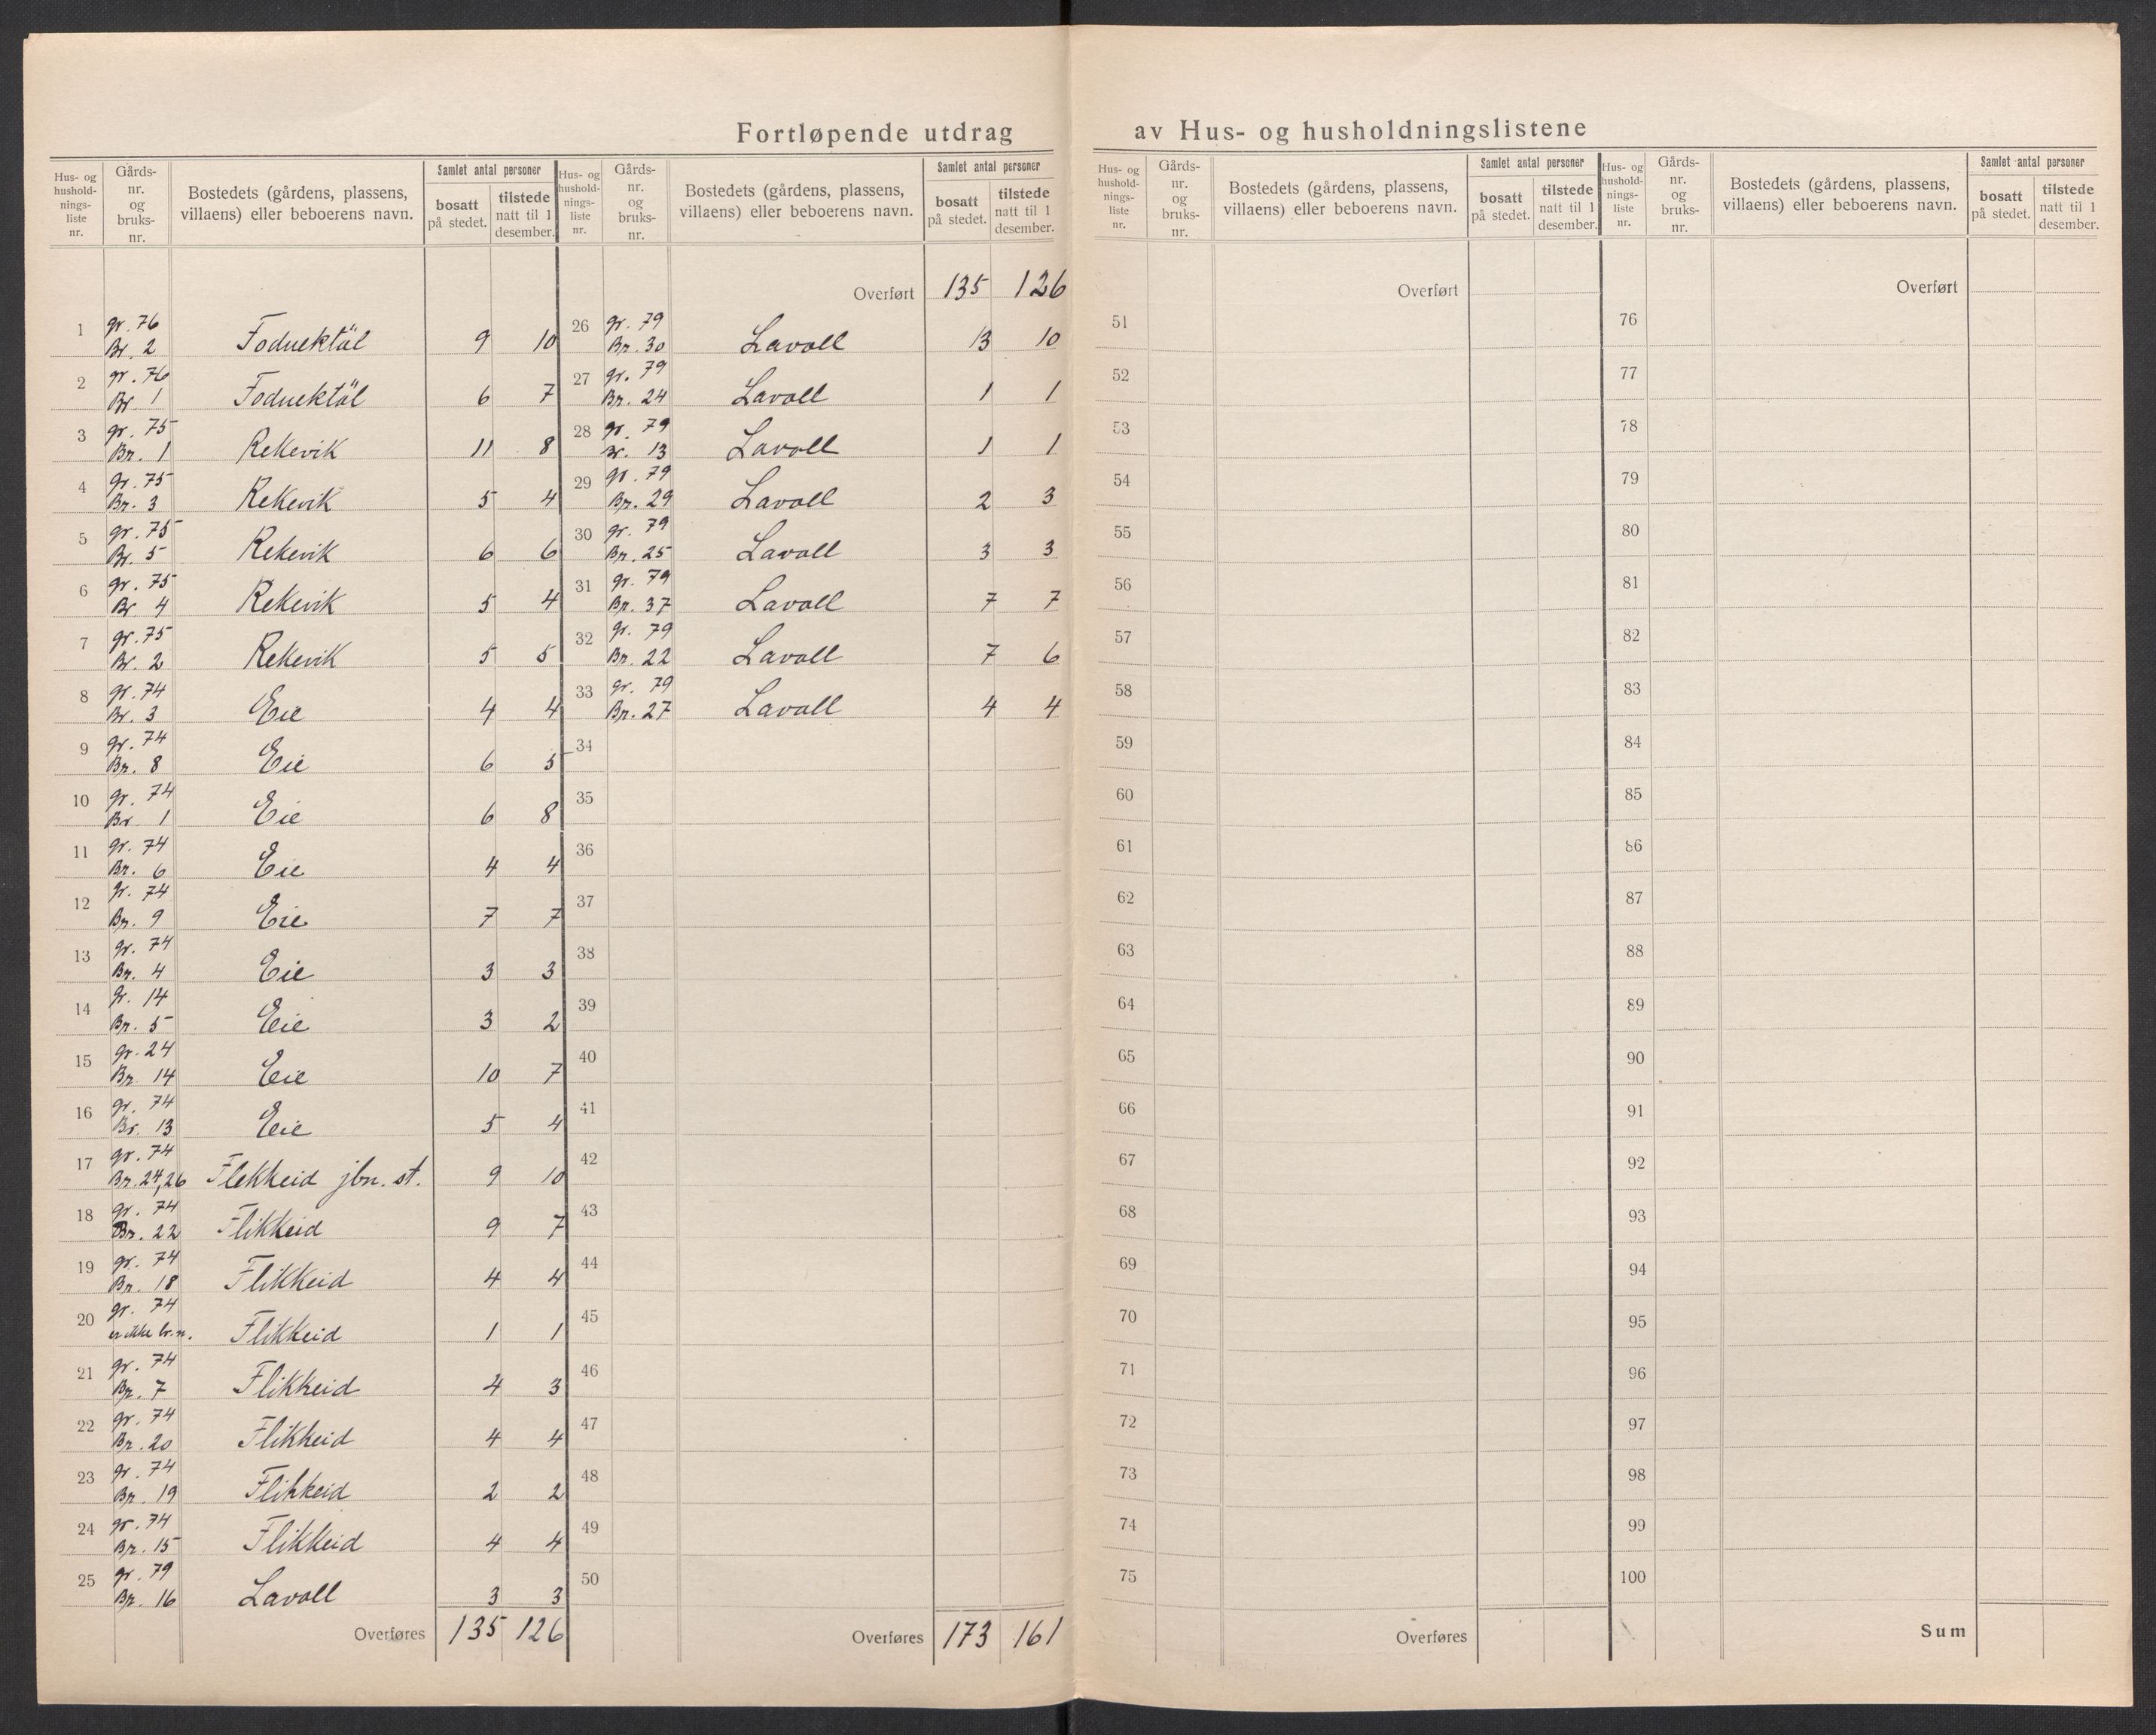 Fortløpende utdrag av Hus- og husholdningslistene
Hus- og husholdnings-liste nr. Gårds-nr. og bruks-nr. Bostedets (gårdens, plassens, villaens) eller beboerens navn. Samlet antal personer bosatt på stedet. tilstede natt til 1 desember.
1 gr. 76 Br. 2 Foduektöl 9 10
2 gr. 76 Br. 1 Foduektöl 6 7
3 gr. 75 Br. 1 Rekevik 11 8
4 gr. 75 Br. 3 Rekevik 5 4
5 gr. 75 Br. 5 Rekevik 6 6
6 gr. 75 Br 4 Rekevik 5 4
7 gr. 75 Br. 2 Rekevik 5 5
8 gr. 74 Br. 3 Eie 4 4
9 gr. 74 Br. 8 Eie 6 5
10 gr. 74 Br 1 Eie 6 8
11 gr. 74 Br. 6 Eie 4 4
12 gr. 74 Br. 9 Eie 7 7
13 gr. 74 Br. 4 Eie 3 3
14 gr. 14 Br. 5 Eie 3 2
15 gr. 24 Br 14 Eie 10 7
16 gr. 74 Br. 13 Eie 5 4
17 gr. 74 Br. 24,26 Flekkeid jbn. st. 9 10
18 gr. 74 Br. 22 Flikkeid 9 7
19 gr. 74 Br. 18 Flikkeid 4 4
20 gr. 74 er ikke br.n. Flikkeid 1 1
21 gr. 74 Br. 7 Flikkeid 4 3
22 gr. 74 Br. 20 Flikkeid 4 4
23 gr. 74 Br. 19 Flikkeid 2 2
24 gr. 74 Br. 15 Flikkeid 4 4
25 gr. 79 Br. 16 Lavoll 3 3
Overføres 135 126
Hus- og husholdnings-liste nr. Gårds-nr. og bruks-nr. Bostedets (gårdens, plassens, villaens) eller beboerens navn. Samlet antal personer bosatt på stedet. tilstede natt til 1 desember.
Overført 135 126
26 gr. 79 Br. 30 Lavoll 13 10
27 gr. 79 Br. 24 Lavoll 1 1
28 gr. 79 Br. 13 Lavoll 1 1
29 gr. 79 Br. 29 Lavoll 2 3
30 gr. 79 Br. 25 Lavoll 3 3
31 gr. 79 Br. 37 Lavoll 7 7
32 gr. 79 Br. 22 Lavoll 7 6
33 gr. 79 Br. 27 Lavoll 4 4
34
35
36
37
38
39
40
41
42
43
44
45
46
47
48
49
50
Overføres 173 161
Hus- og husholdnings-liste nr. Gårds-nr. og bruks-nr. Bostedets (gårdens, plassens, villaens) eller beboerens navn. Samlet antal personer bosatt på stedet. tilstede natt til 1 desember.
Overført
51
52
53
54
55
56
57
58
59
60
61
62
63
64
65
66
67
68
69
70
71
72
73
74
75
Overføres
Hus- og husholdnings-liste nr. Gårds-nr. og bruks-nr. Bostedets (gårdens, plassens, villaens) eller beboerens navn. Samlet antal personer bosatt på stedet. tilstede natt til 1 desember.
Overført
76
77
78
79
80
81
82
83
84
85
86
87
88
89
90
91
92
93
94
95
96
97
98
99
100
Sum